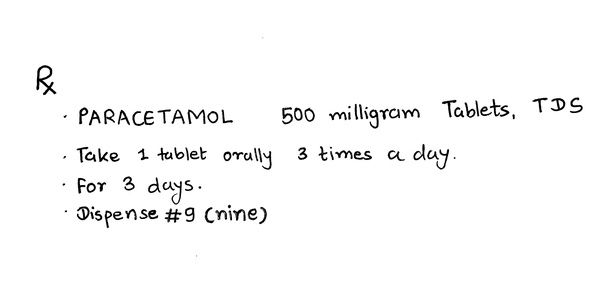 ℞
· PARACETAMOL 500 milligram Tablets, TDS
· Take 1 tablet orally 3 times a day.
· For 3 days.
· Dispense #9 (nine)